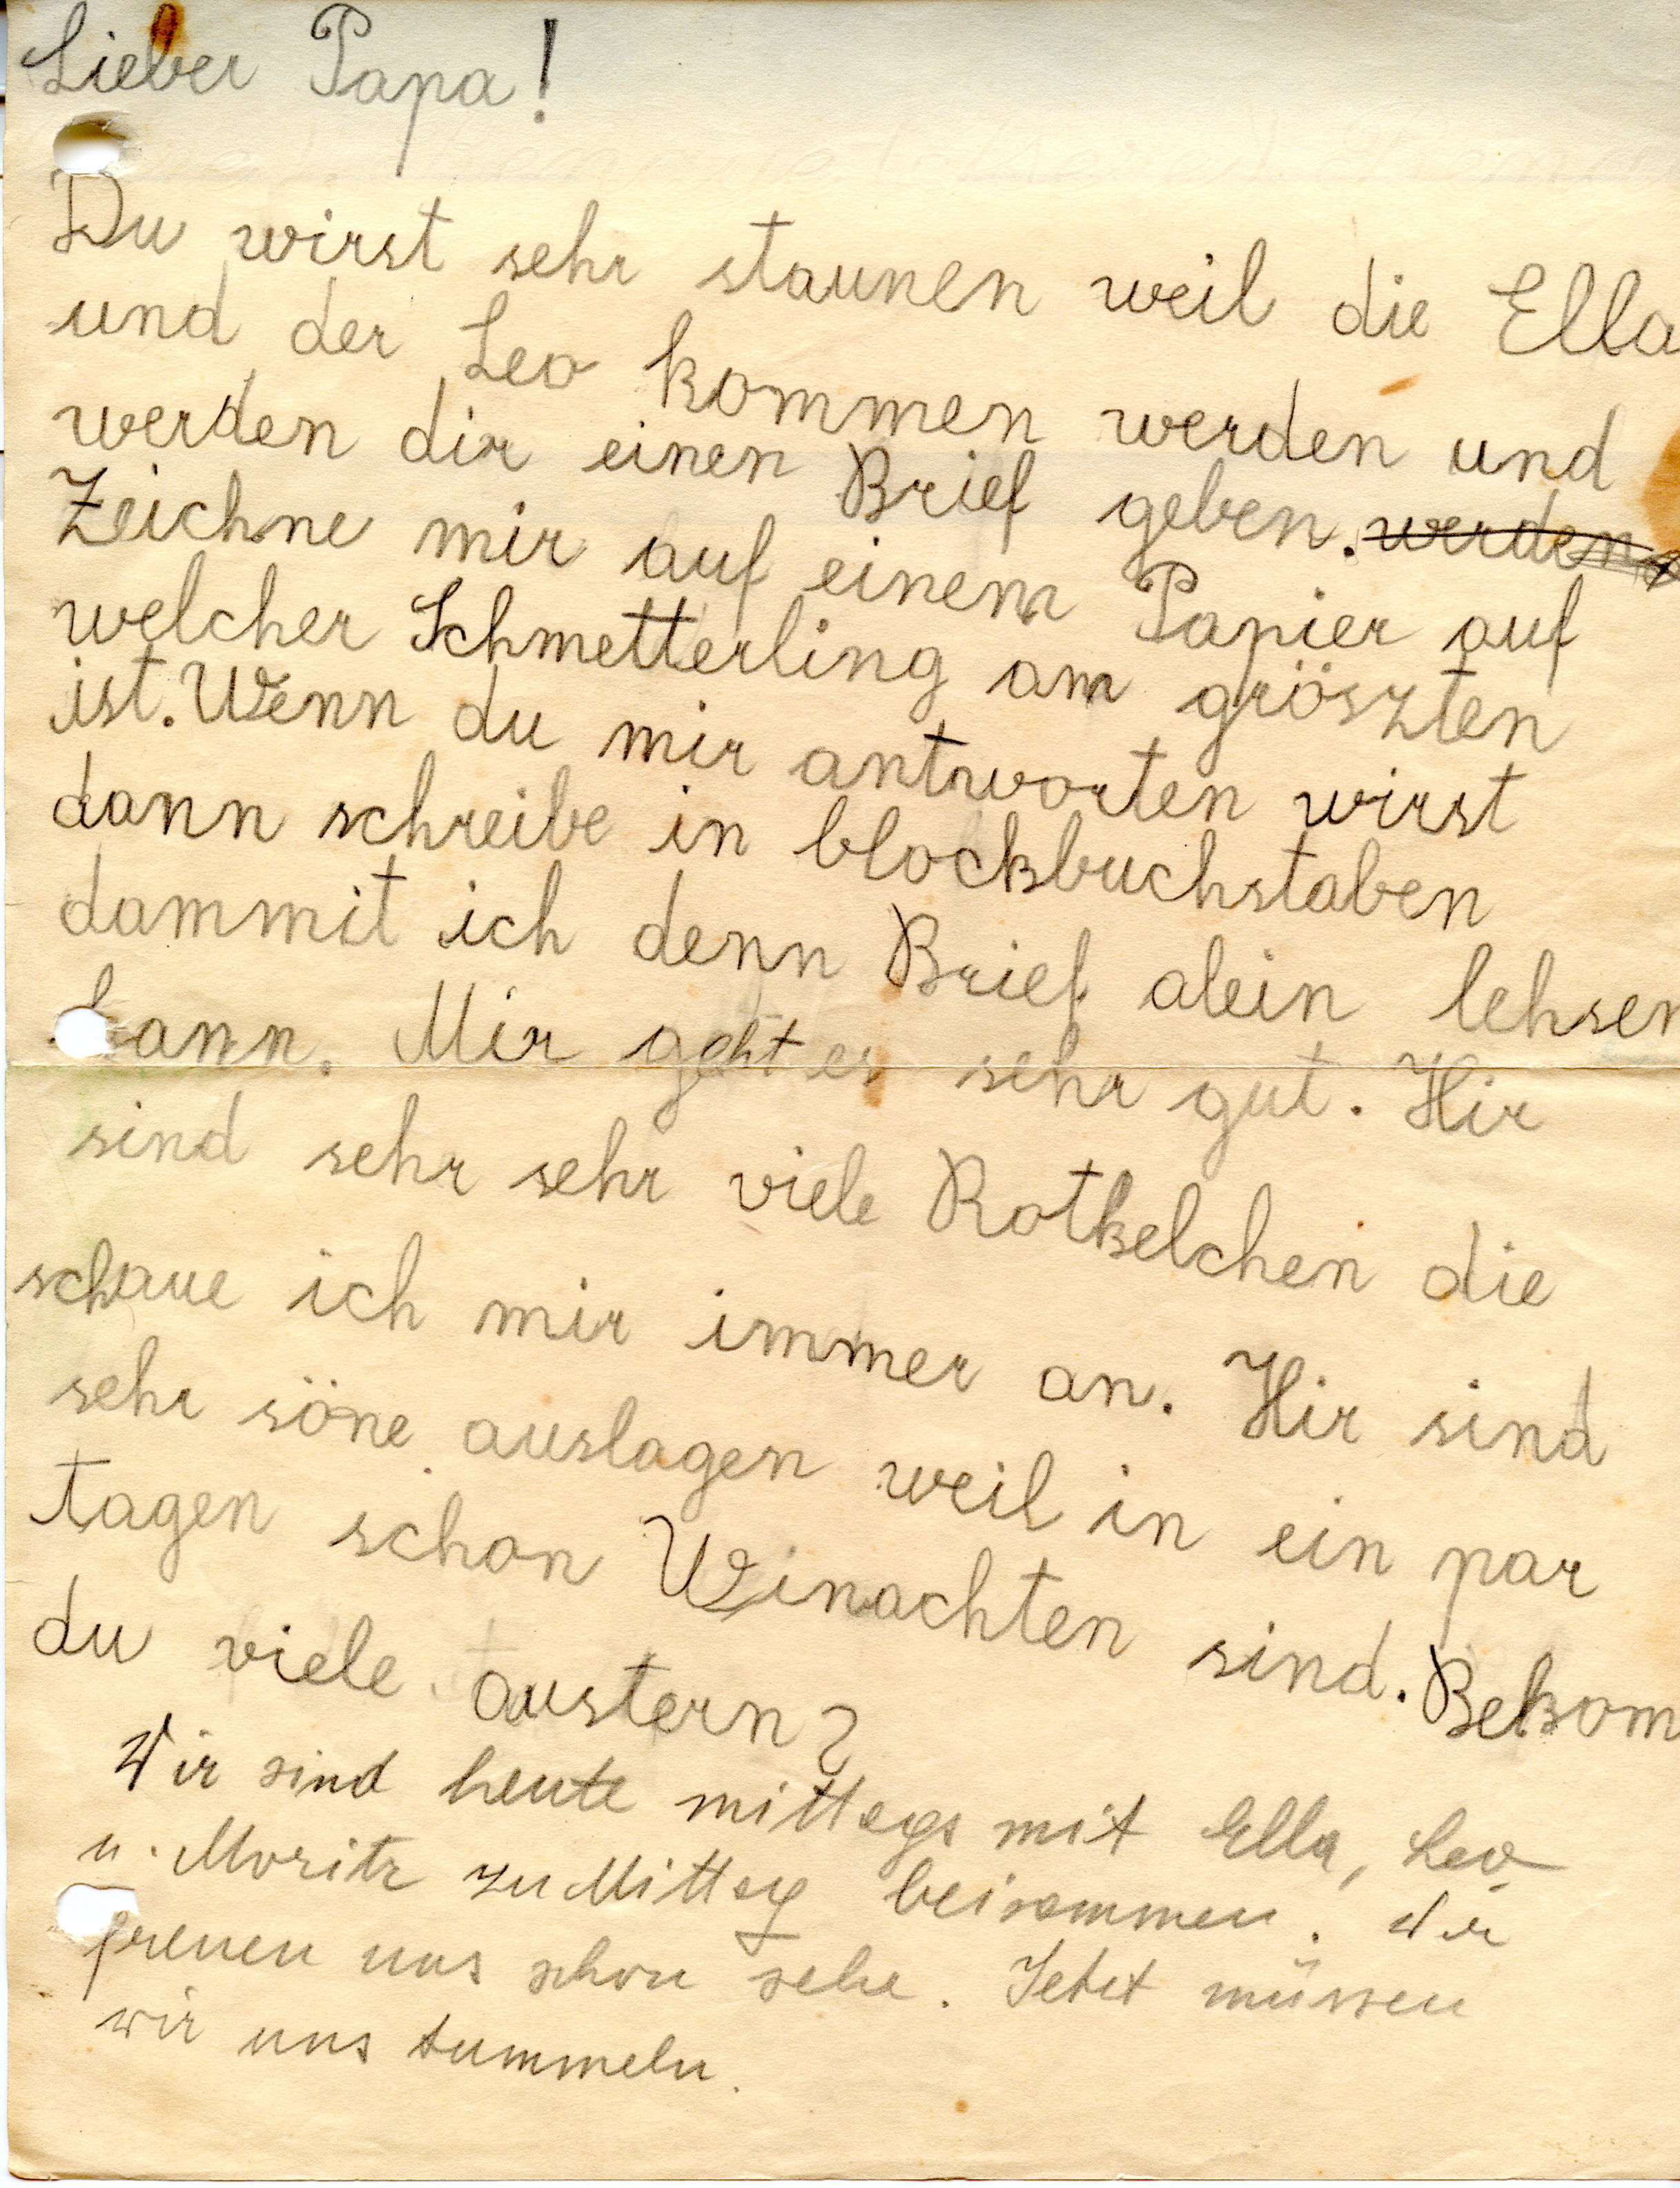 Lieber Papa!
Du wirst sehr staunen weil die Ella
und der Leo kommen werden und
werden dir einen Brief geben. werden
Zeichne mir auf einem Papier auf
welcher Schmetterling am gröszten
ist. Wenn du mir antworten wirst
dann schreibe in blockbuchstaben
dammit ich denn Brief alein lehsen
kann. Mir geht es sehr gut. Hir
sind sehr sehr viele Rotkelchen die
schaue ich mir immer an. Hir sind
sehr söne auslagen weil in ein par
tagen schon Winachten sind. Bekom
du viele austern?
Wir sind heute mittags mit Ella, Leo
u. Moritz zu Mittag beisammen. Wir
freuen uns schon sehr. Jetzt müssen
wir uns tummeln.